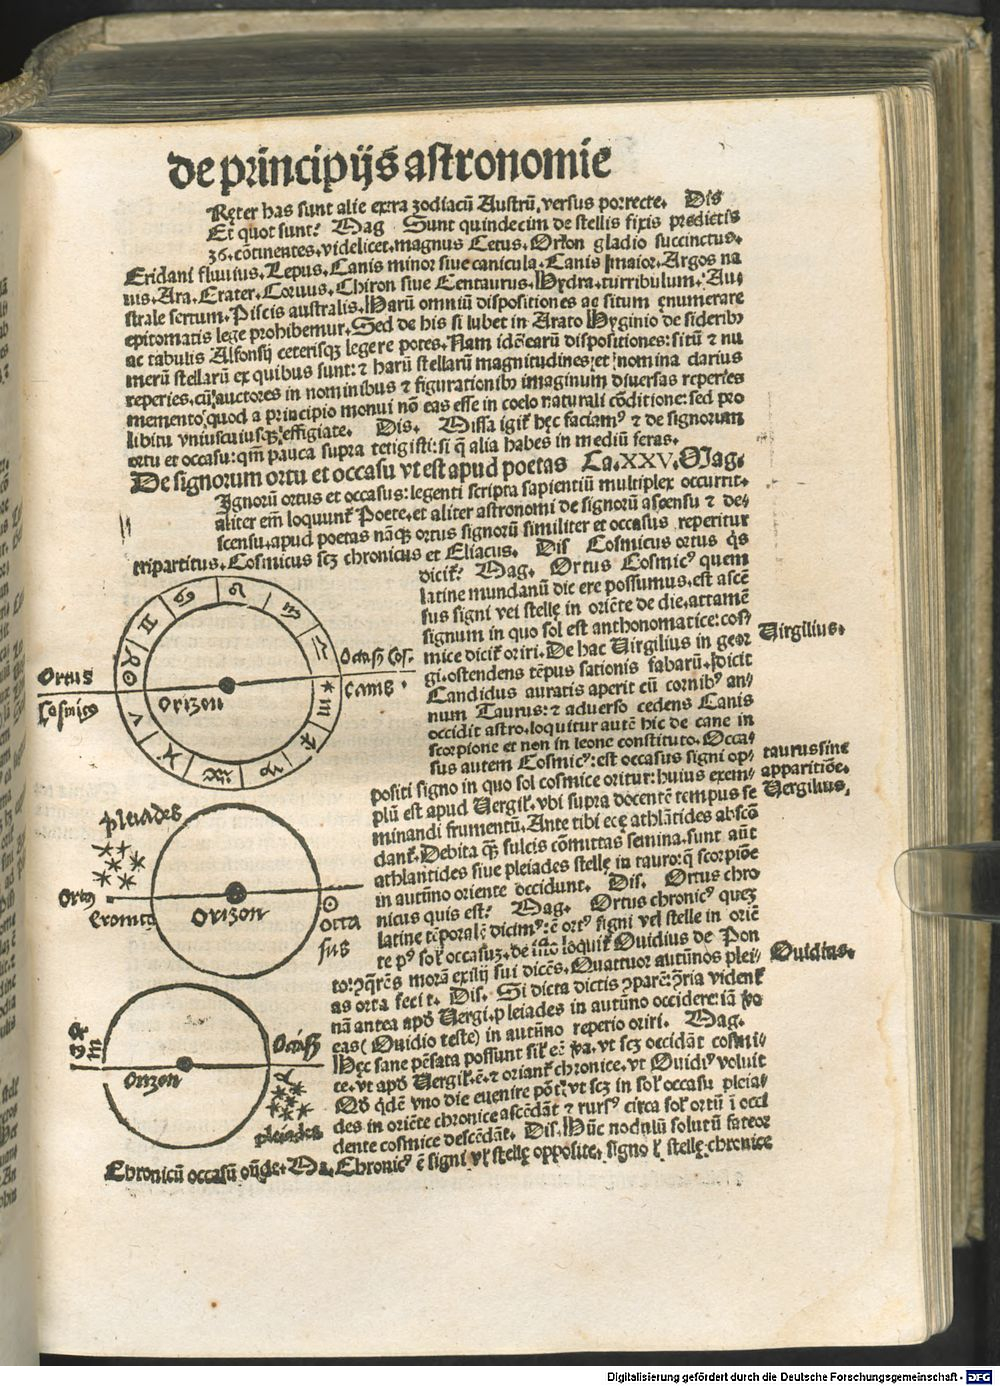 de principijs astronomie
Ręter has sunt alie extra zodiacū Austrū, versus porrecte. Dis
Et quot sunt? Mag Sunt quindecim de stellis fixis predictis
36. cōtinentes. videlicet. magnus Cetus. Orion gladio succinctus.
Eridani fluuius. Lepus. Canis minor siue canicula. Canis maior. Argos na
uis. Ara. Crater. Coruus. Chiron siue Centaurus. Hydra. turribulum. Au
strale sertum. Piscis australis. Harū omniū dispositiones ac situm ęnumerare
epitomatis lege prohibemur. Sed de his si lubet in Arato Hyginio de sideribꝰ
ac tabulis Alfonsij ceterisqꝫ legere potes. Nam idē earū dispositiones: sitū ⁊ nu
merū stellarū ex quibus sunt: ⁊ harū stellarū magnitudines, et nomina clarius
reperies. cū auctores in nominibus ⁊ figurationibꝰ imaginum diuersas reperies
memento, quod a principio monui nō eas esse in coelo naturali cōditione: sed pro
libitu vniuscuiusqꝫ effigiate. Dis. Missa igit̄ hęc faciamꝰ ⁊ de signorum
ortu et occasu: qm̄ pauca supra tetigisti: si q̄ alia habes in mediū feras.
De signorum ortu et occasu vt est apud poetas Ca. XXV. Mag.
Ignorū ortus et occasus: legenti scripta sapientiū multiplex occurrit.
aliter em̄ loquunt̄ Poete, et aliter astronomi de signorū ascensu ⁊ de-
scensu. apud poetas nāqꝫ ortus signorū similiter et occasus reperitur
tripartitus. Cosmicus scꝫ chronicus et Eliacus. Dis Cosmicus ortus q̄s
dicit̄? Mag. Ortus Cosmicꝰ quem
latine mundanū dicere possumus. est ascē
sus signi vel stellę in oriēte de die. attamē
signum in quo sol est anthonomatice: cos-
mice dicit̄ oriri. De hac Virgilius in geor
Virgilius.
gi. ostendens tēpus sationis fabarū. Dicit
Candidus auratis aperit cū cornibꝰ an-
num Taurus: ⁊ aduerso cedens Canis
occidit astro. loquitur autē hic de cane in
scorpione et non in leone constituto. Occa-
sus autem Cosmicꝰ: est occasus signi op-
taurus sine
positi signo in quo sol cosmice oritur: huius exem-
apparitiōe.
plū est apud Vergil̄. vbi supra docentē tempus se
Vergilius,
minandi frumentū. Ante tibi eoę athlātides abscō
dant̄. Debita q̄ꝫ sulcis cōmittas semina. sunt aūt
athlantides siue pleiades stellę in tauro: q̄ scorpiōe
in autūno oriente occidunt. Dis. Ortus chro
nicus quis est? Mag. Ortus chronicꝰ quez
latine tēporalē dicimꝰ: ē ortꝰ signi vel stelle in oriē
te pꝰ sol̄ occasuz. de isto loquit̄ Ouidius de Pon
Ouidius.
to: ꝯq̄rēs morā exilij sui dicēs. Quattuor autūnos plei-
as orta fecit. Dis. Si dicta dictis ꝯparē: ꝯ̄ria vident̄
nā antea apd̄ Vergi. pleiades in autūno occidere: iā ꝟo
eas (Ouidio teste) in autūno reperio oriri. Mag.
Hęc sane pēsata possunt sil̄ eē ꝟa. vt scꝫ occidāt cosmi-
ce. vt apd̄ Vergil̄. ē. ⁊ oriant̄ chronice. vt Ouidiꝰ voluit
Qd̄ q̄dē vno die euenire pōt: vt scꝫ in sol̄ occasu pleia-
des in oriēte chronice ascēdāt ⁊ rursꝰ circa sol̄ ortū ī occi
dente cosmice descēdāt. Dis. Hūc nodulū solutū fateor
Chronicū occasū on̄de. Ma. Chronicꝰ ē signi vl̄ stellę opposite. signo l̄ stellę chronice
Ortus
Cosmicꝰ
Orizon
Occasꝰ Cos.
pleiades
Ortꝰ
Orizon
occa
sus
Orizon
Occasꝰ
pleiades
Digitalisierung gefördert durch die Deutsche Forschungsgemeinschaft - DFG